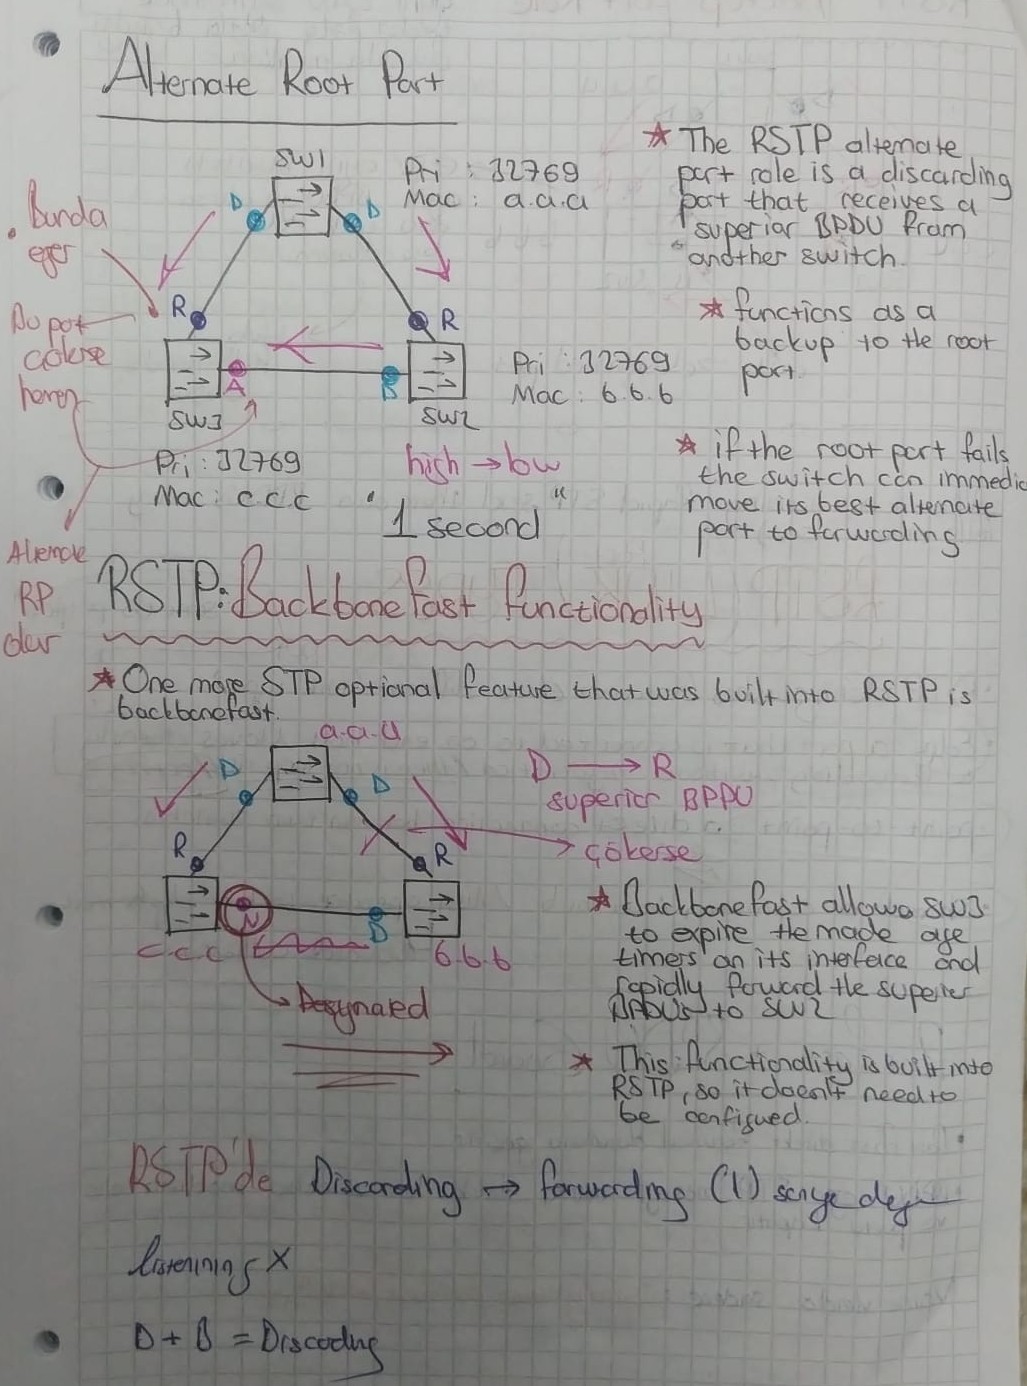 Alternate Root Port
SW1
Pri : 32769
Mac : a.a.a
D
D
R
R
A
D
SW3
SW2
Pri : 32769
Mac : b.b.b
Pri : 32769
Mac : c.c.c
high → low
"1 second"
Bunda
eger
Bu port
çökerse
hemen
Alternate
RP
olur
* The RSTP alternate
port role is a discarding
port that receives a
superior BPDU from
another switch.
* functions as a
backup to the root
port.
* if the root port fails
the switch can immedia
move its best alternate
port to forwarding
RSTP: Backbone fast functionality
* One more STP optional feature that was built into RSTP is
backbonefast.
a.a.a
D
D
R
R
N
D
c.c.c
b.b.b
D → R
superior BPDU
çökerse
Desgnated
* Backbone fast allows SW3
to expire the made age
timers on its interface and
rapidly forward the superior
BPDUs to SW2
* This functionality is built into
RSTP, so it doesn't need to
be configued.
RSTP'de Discarding → forwarding (1) saniye
listening X
D + B = Discoding